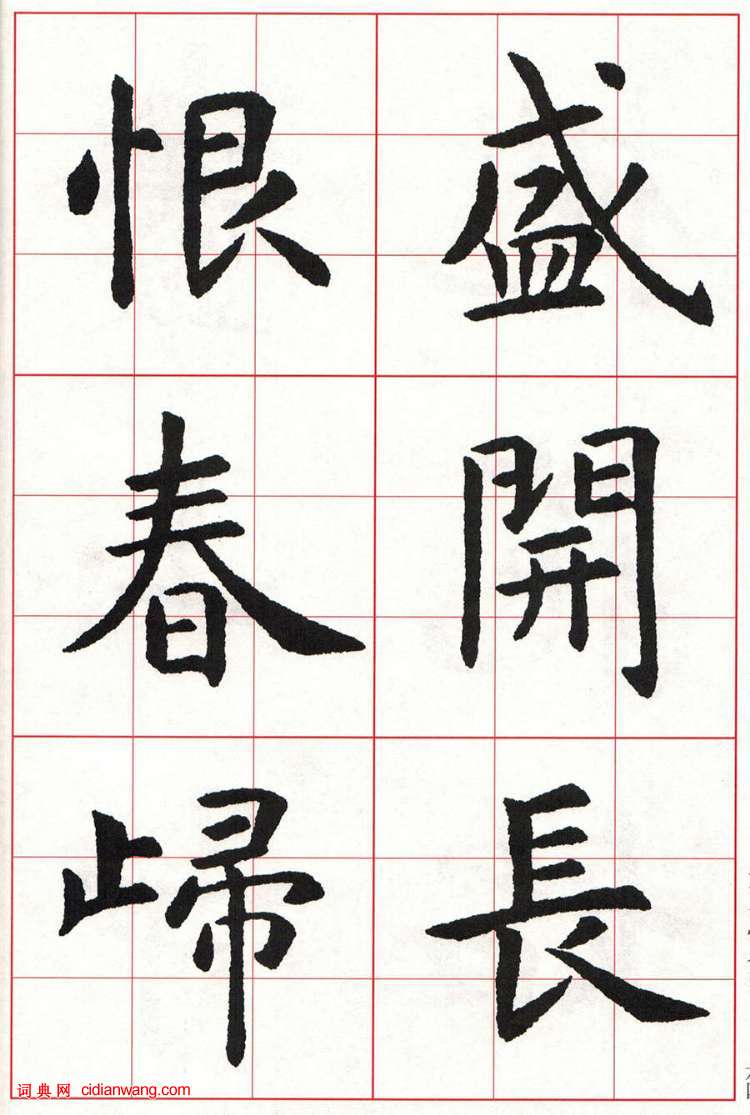 盛開長
恨春歸
词典网 cidianwang.com